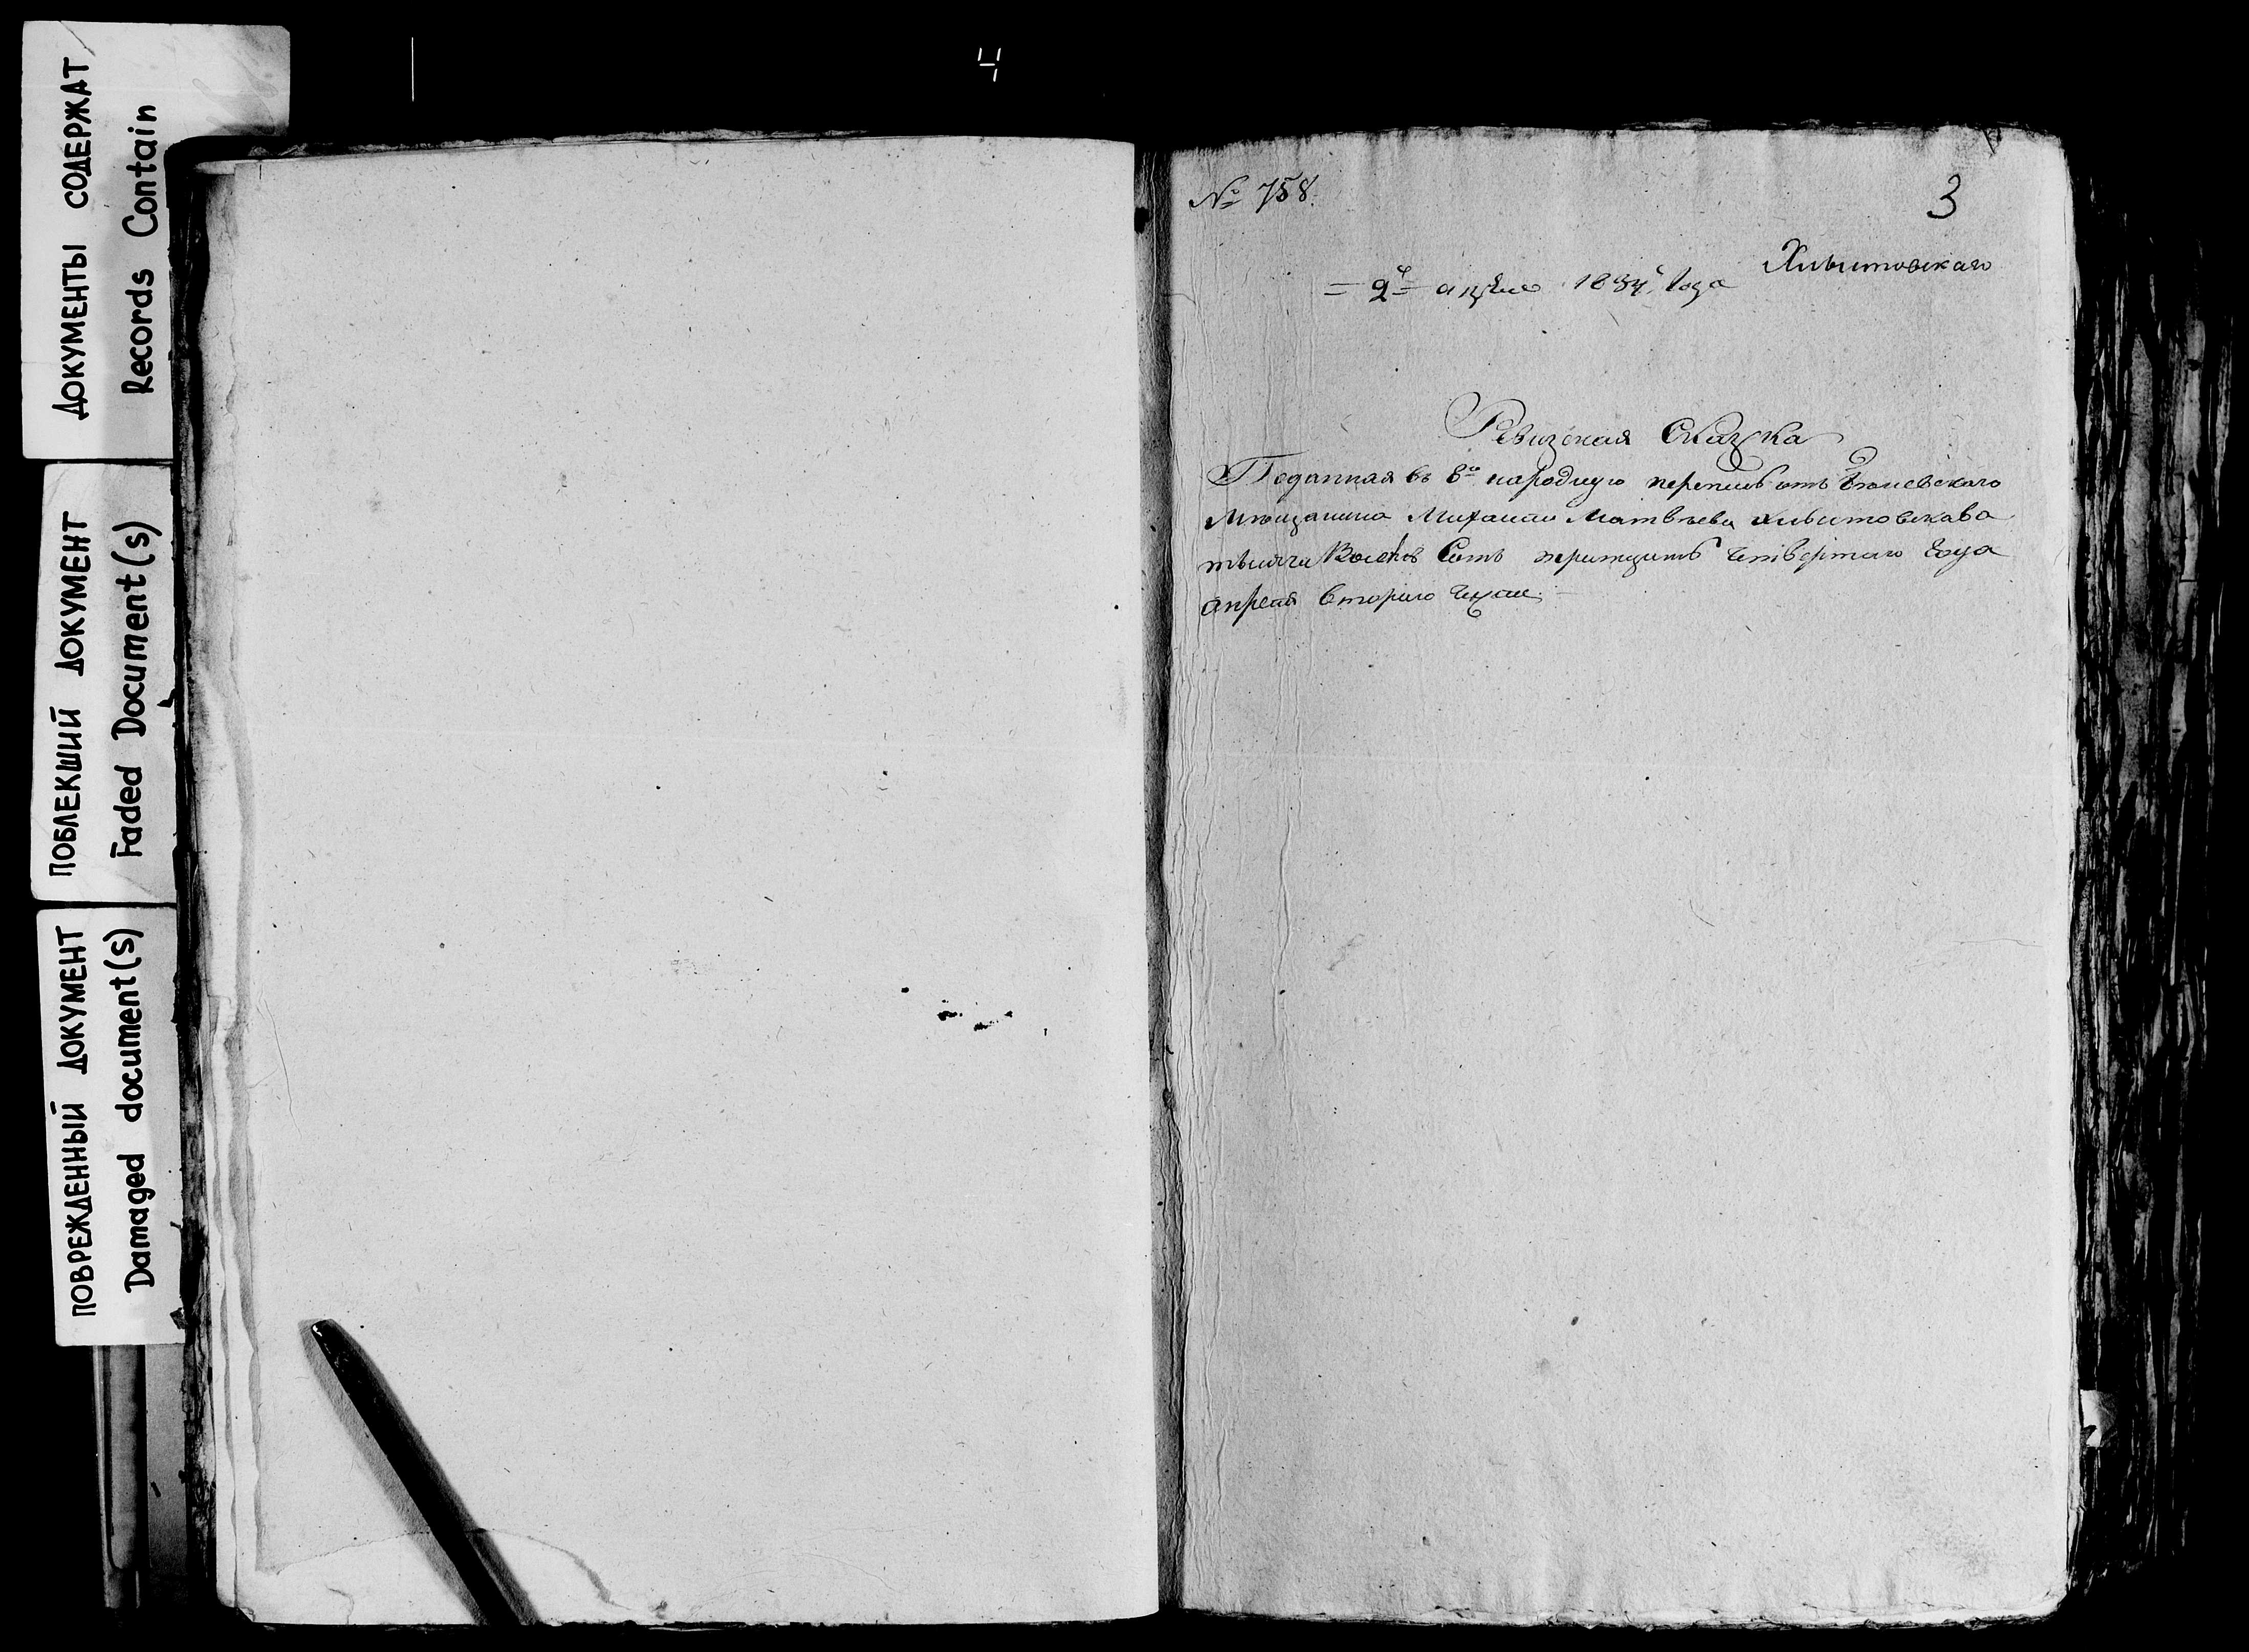 4
ДОКУМЕНТЫ СОДЕРЖАТ
Records Contain
ПОБЛЕКШИЙ ДОКУМЕНТ
Faded Document(s)
ПОВРЕЖДЕННЫЙ ДОКУМЕНТ
Damaged document(s)
№ 758.
3
= 2е = апреля 1834. Года
Ревизская Сказка
Поданная въ 8ю народную перепись отъ
Мѣщанина Михаила Матвѣева
тысяча Восемь Сотъ тритцать четвертаго Года
апреля втораго числа